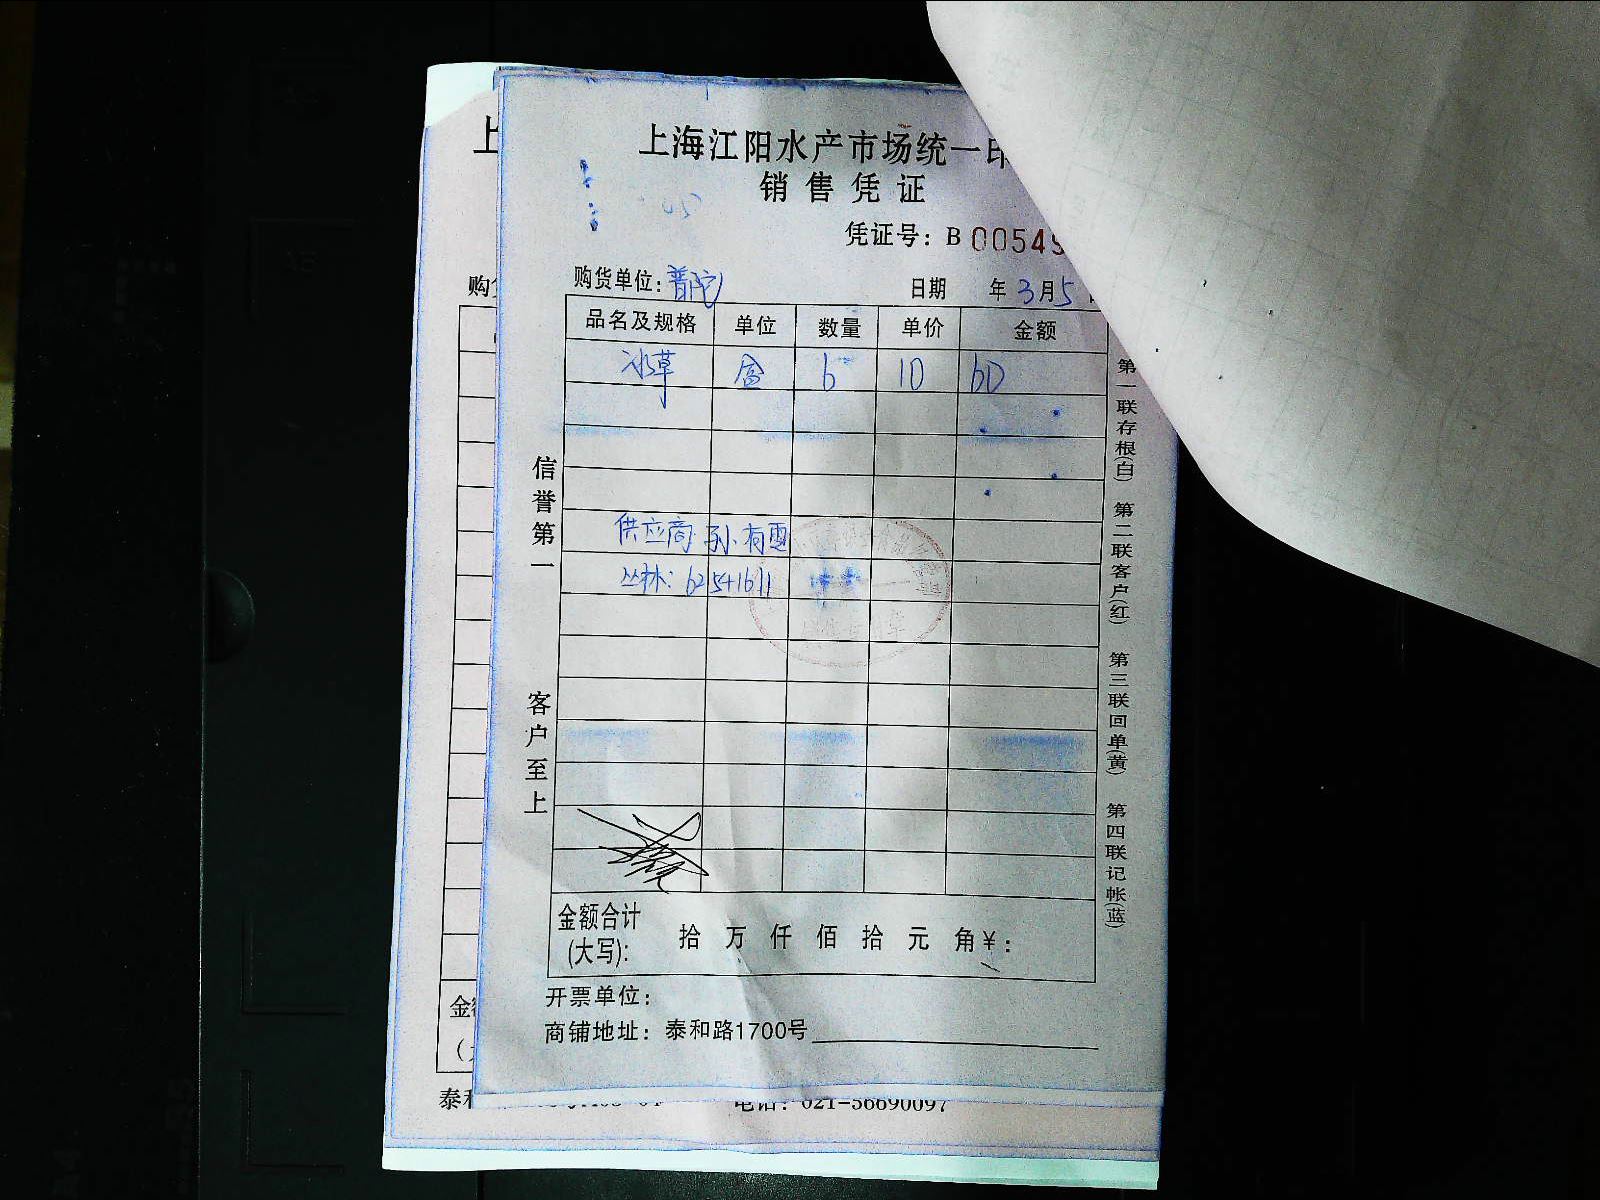 上海江阳水产市场统一印
销售凭证
凭证号：B 00549
购货单位：普陀 日期 年3月5
品名及规格 单位 数量 单价 金额
冰草 盒 6 10 60
供应商：孙有雪
丛林：62541611
信誉第一
客户至上
第一联存根(白) 第二联客户(红) 第三联回单(黄) 第四联记帐(蓝)
金额合计
(大写)： 拾 万 仟 佰 拾 元 角 ¥：
开票单位：
商铺地址：泰和路1700号
上
购
金
泰和
电话：021-56690097